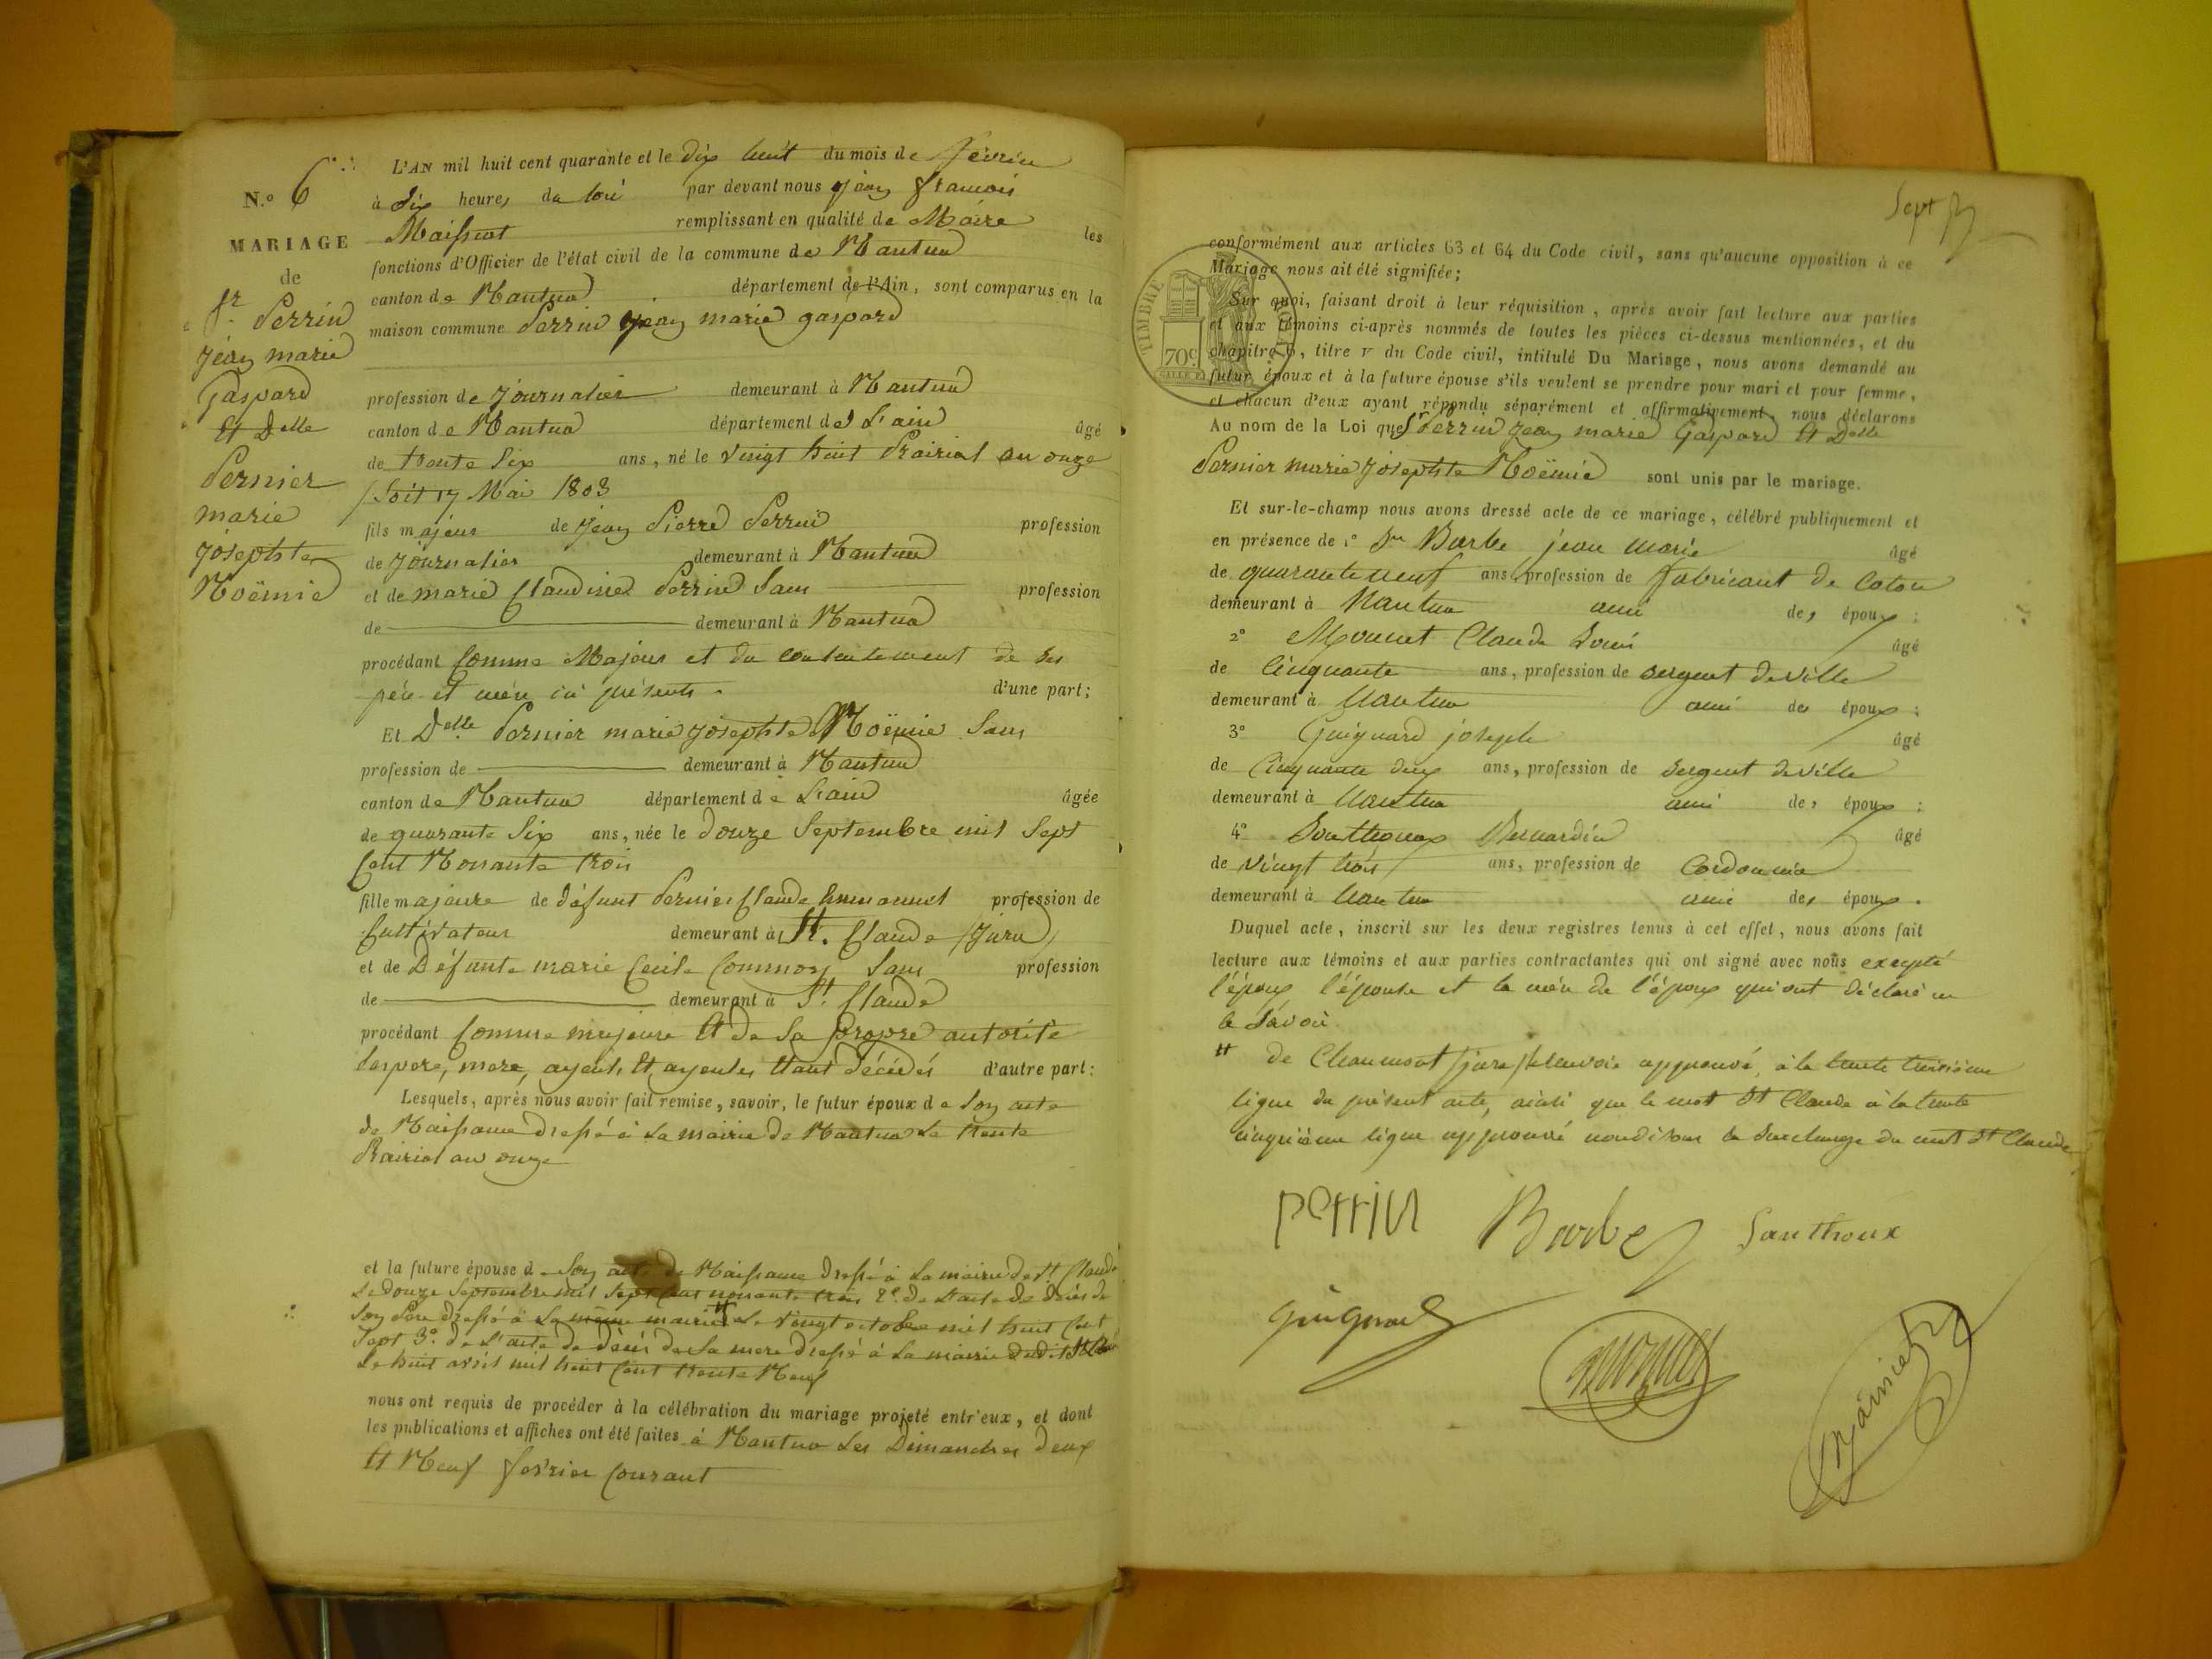 N.o 6
MARIAGE
de
Sr Perrin
jean marie
Gaspard
Et Delle
Pernier
marie
josephte
Noëmie
L'AN mil huit cent quarante et le dix huit du mois de février
à Six heures du soir par devant nous jean francois
Maissiat remplissant en qualité de Maire les
fonctions d'Officier de l'état civil de la commune de Nantua
canton de Nantua département de l'Ain, sont comparus en la
maison commune Perrin jean marie gaspard
profession de journalier demeurant à Nantua
canton de Nantua département de L'ain âgé
de trente Six ans, né le vingt huit Prairial an onze
/Soit 17 Mai 1803
fils majeur de jean Pierre Perrin profession
de journalier demeurant à Nantua
et de marie Claudine Perrin Sans profession
de demeurant à Nantua
procédant Comme Majeur et du consentement de ses
père et mère ici présents. d'une part;
Et Delle Pernier marie josephte Noëmie Sans
profession de demeurant à Nantua
canton de Nantua département de L'ain âgée
de quarante Six ans, née le douze Septembre mil Sept
Cent Nonante trois
fille majeure de défunt Pernier Claude Emmanuel profession de
Cultivateur demeurant à St. Claude (Jura)
et de Défunte marie Cecile Commoy Sans profession
de demeurant à St. Claude
procédant Comme majeure Et de Sa propre autorité
Ses pere, mere, ayeuls Et ayeules Etant décédés d'autre part:
Lesquels, après nous avoir fait remise, savoir, le futur époux de Son acte
de Naissance dressé à La mairie de Nantua Le trente
Prairial an onze
et la future épouse de Son acte de Naissance dressé à La mairie de St Claude
Le douze Septembre mil Sept Cent nonante trois 2o. de L'acte de décès de
Son Père dressé à La même mairie # Le vingt octobre mil huit Cent
Sept 3o. de L'acte de décès de Sa mere dressé à La mairie dudit St Claude
Le huit avril mil huit Cent trente Neuf
nous ont requis de procéder à la célébration du mariage projeté entr'eux, et dont
les publications et affiches ont été faites à Nantua Les Dimanches deux
Et Neuf fevrier Courant
Sept
conformément aux articles 63 et 64 du Code civil, sans qu'aucune opposition à ce
Mariage nous ait été signifiée;
TIMBRE
70c
Sur quoi, faisant droit à leur réquisition, après avoir fait lecture aux parties
et aux témoins ci-après nommés de toutes les pièces ci-dessus mentionnées, et du
chapitre 6, titre V du Code civil, intitulé Du Mariage, nous avons demandé au
futur époux et à la future épouse s'ils veulent se prendre pour mari et pour femme,
et chacun d'eux ayant répondu séparément et affirmativement, nous déclarons
Au nom de la Loi que Sr Perrin jean marie Gaspard Et Delle
Pernier marie josephte Noëmie sont unis par le mariage.
Et sur-le-champ nous avons dressé acte de ce mariage, célébré publiquement et
en présence de 1o Sr Barbe jean marie âgé
de quarante neuf ans, profession de fabricant de Coton
demeurant à Nantua ami des époux;
2o Monnet Claude Louis âgé
de Cinquante ans, profession de sergent de ville
demeurant à Nantua ami des époux;
3o Guignard joseph âgé
de Cinquante deux ans, profession de sergent de ville
demeurant à Nantua ami des époux;
4o Santhoux Bernardin âgé
de vingt trois ans, profession de Cordonnier
demeurant à Nantua ami des époux.
Duquel acte, inscrit sur les deux registres tenus à cet effet, nous avons fait
lecture aux témoins et aux parties contractantes qui ont signé avec nous excepté
l'époux l'épouse et la mère de l'époux qui ont déclaré ne
le Savoir.
# de Chaumont /jura/ Renvoi approuvé, à la trente troisième
ligne du présent acte, ainsi que le mot St Claude à la trente
cinquième ligne approuvé aussi la Surcharge du mot St Claude
perrin Barbe Santhoux
guignard
monnet